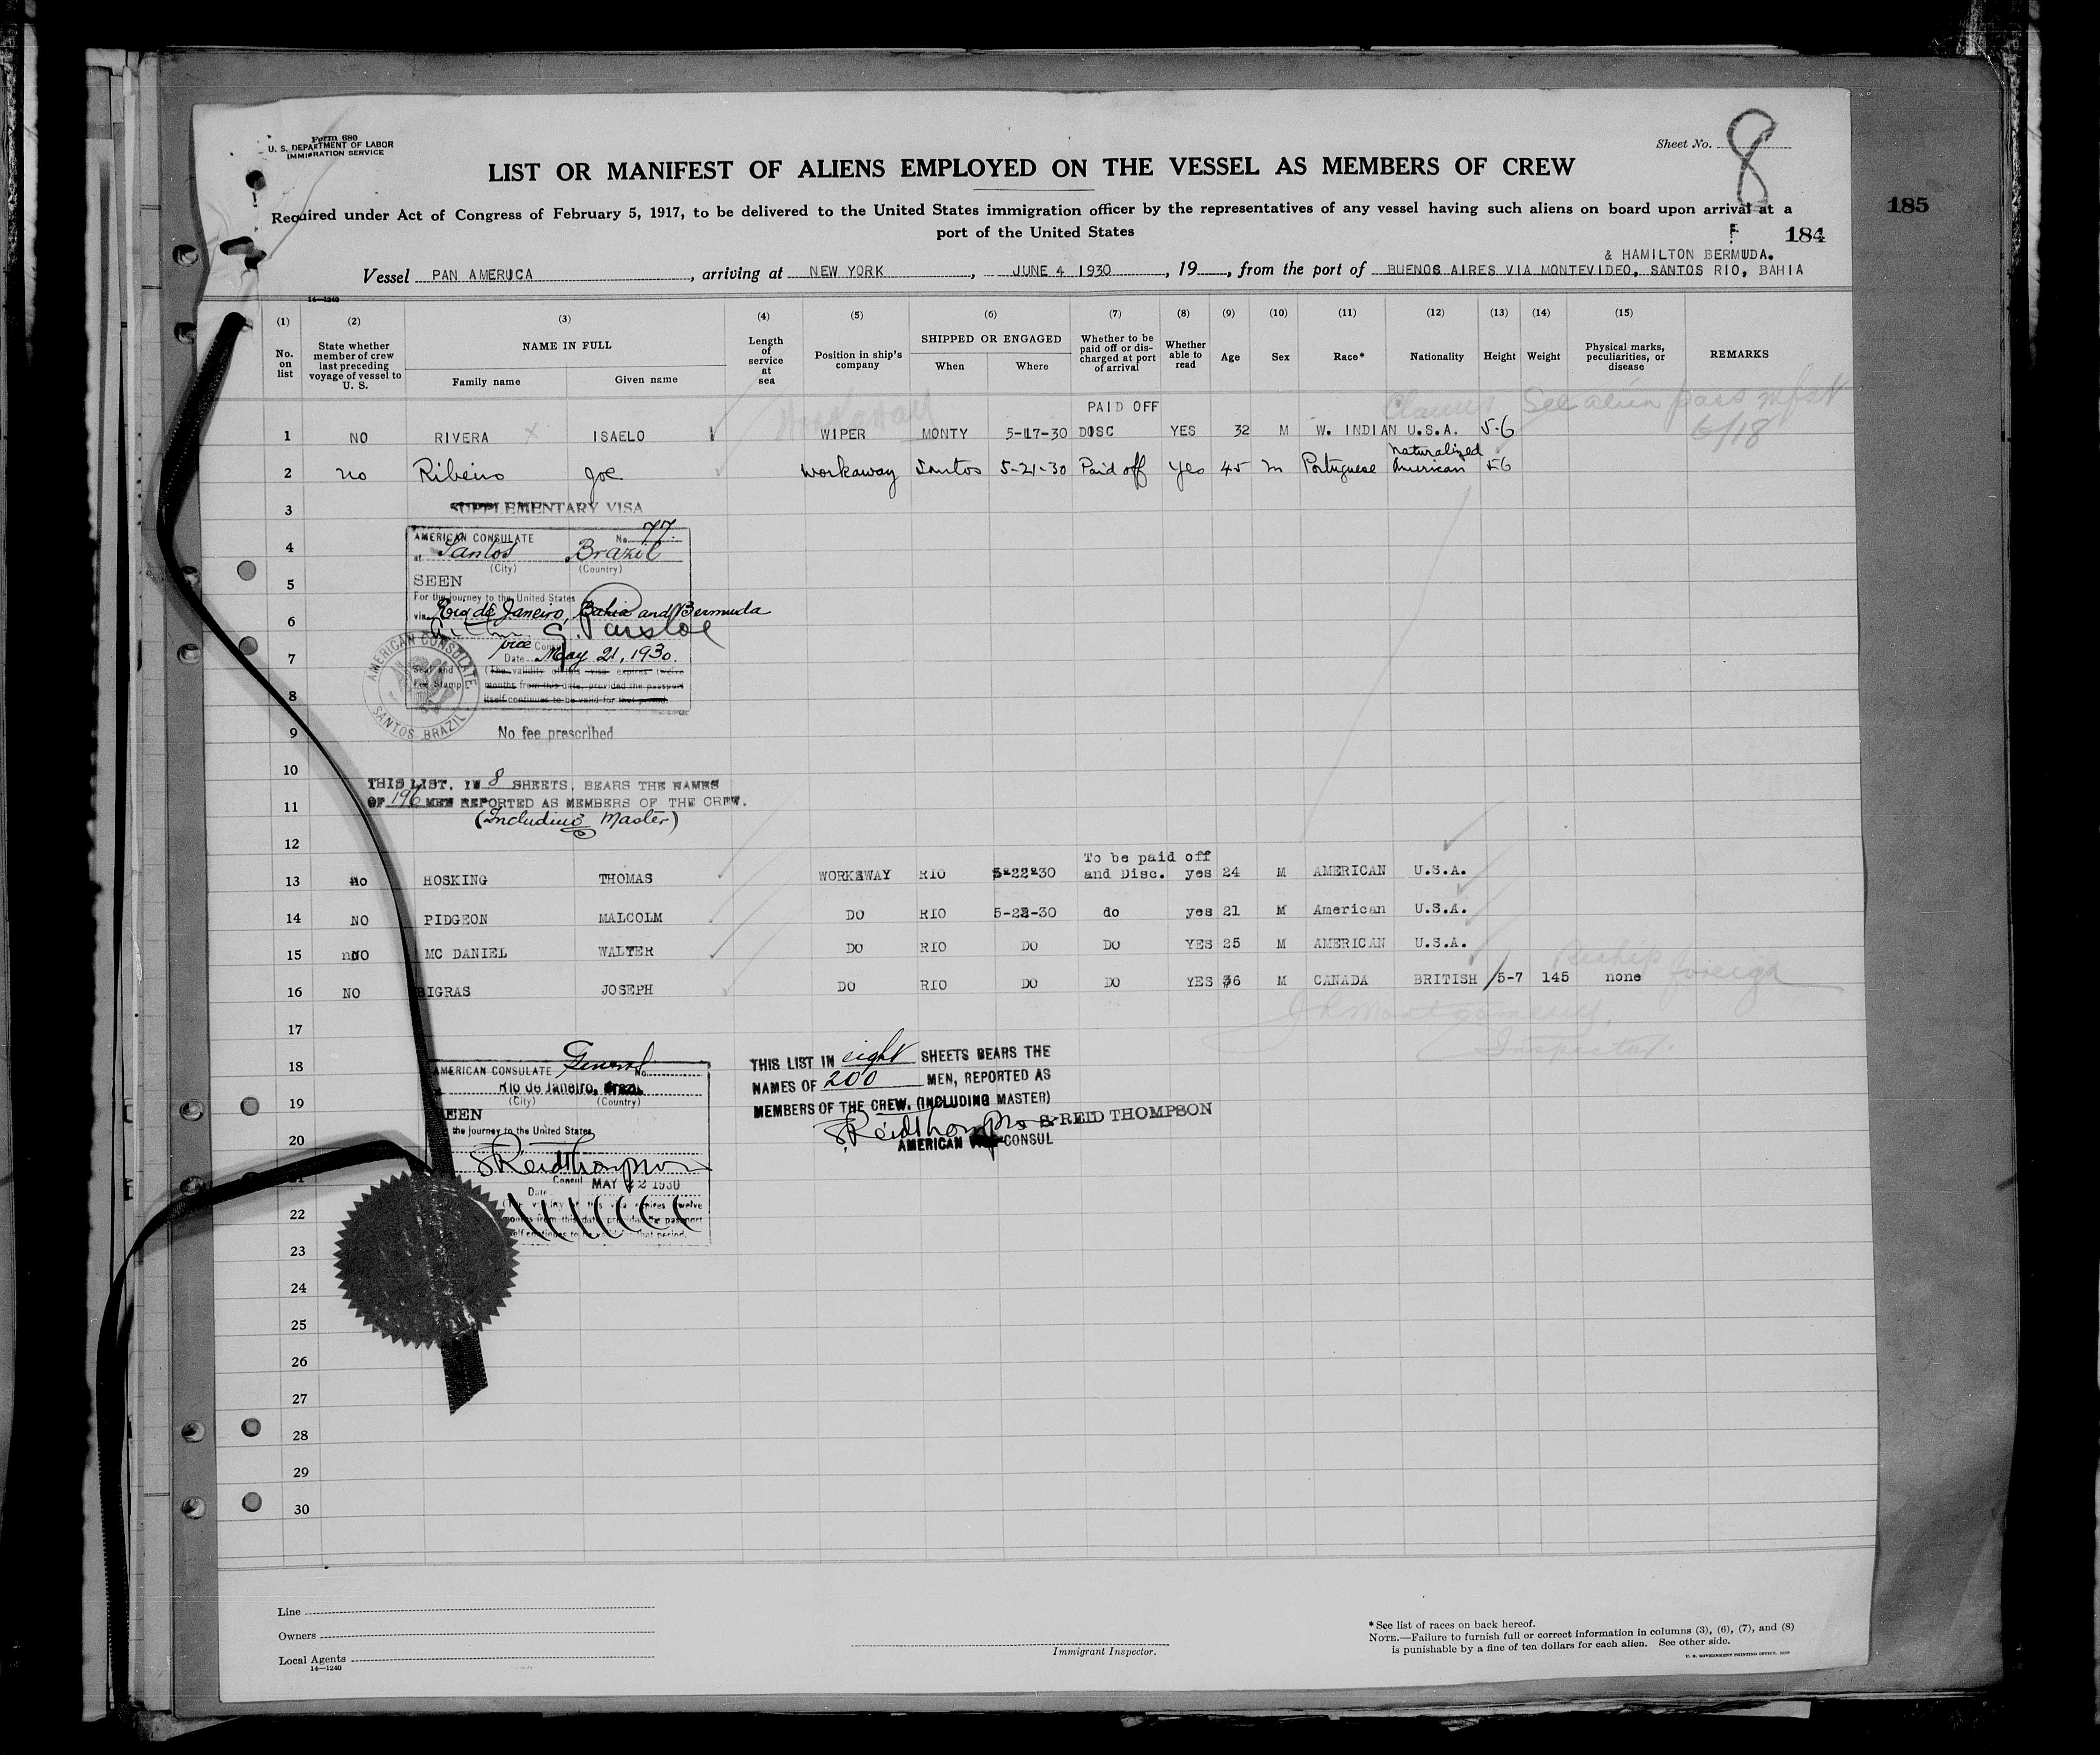 Form 680
U. S. DEPARTMENT OF LABOR
IMMIGRATION SERVICE
Sheet No. 8
LIST OR MANIFEST OF ALIENS EMPLOYED ON THE VESSEL AS MEMBERS OF CREW
Required under Act of Congress of February 5, 1917, to be delivered to the United States immigration officer by the representatives of any vessel having such aliens on board upon arrival at a
port of the United States
185
184
& HAMILTON BERMUDA.
Vessel PAN AMERUCA, arriving at NEW YORK, JUNE 4 1930, 19, from the port of BUENOS AIRES VIA MONTEVIDEO, SANTOS RIO, BAHIA
14—1240
(1) (2) (3) (4) (5) (6) (7) (8) (9) (10) (11) (12) (13) (14) (15)
No. on list
State whether member of crew last preceding voyage of vessel to U. S.
NAME IN FULL
Family name
Given name
Length of service at sea
Position in ship's company
SHIPPED OR ENGAGED
When
Where
Whether to be paid off or discharged at port of arrival
Whether able to read
Age
Sex
Race*
Nationality
Height
Weight
Physical marks, peculiarities, or disease
REMARKS
Workaway
PAID OFF
Claims See alien pass mfst
6/18
1 NO RIVERA X ISAELO WIPER MONTY 5-17-30 DISC YES 32 M W. INDIAN U.S.A. 5-6
Naturalized
2 no Ribeiro Joe workaway Santos 5-21-30 Paid off Yes 45 m Portuguese American 56
3
SUPPLEMENTARY VISA
4
AMERICAN CONSULATE No. 77.
at Santos Brazil
(City) (Country)
5
SEEN
For the journey to the United States
6
via Rio de Janeiro, Bahia and Bermuda
vice Consul
7
Date May 21, 1930.
(The validity of this visa expires twelve
months from this date, provided the passport
8
itself continues to be valid for that period.
Seal and
Fee Stamp
AMERICAN CONSULATE
SANTOS, BRAZIL
9
No fee prescribed
10
THIS LIST, IN 8 SHEETS, BEARS THE NAMES
11
OF 196 MEN REPORTED AS MEMBERS OF THE CREW.
(Including Master)
12
To be paid off
13 no HOSKING THOMAS WORKAWAY RIO 5-22-30 and Disc. yes 24 M AMERICAN U.S.A.
14 NO PIDGEON MALCOLM DO RIO 5-22-30 do yes 21 M American U.S.A.
15 NO MC DANIEL WALTER DO RIO DO DO YES 25 M AMERICAN U.S.A.
Reship foreign
16 NO BIGRAS JOSEPH DO RIO DO DO YES 36 M CANADA BRITISH 5-7 145 none
17
Montgomery,
Inspector.
18
General
AMERICAN CONSULATE No.
Rio de Janeiro, Brazil
(City) (Country)
19
SEEN
the journey to the United States
20
S Reid Thompson
Consul
21
Date MAY 22 1930
22
23
THIS LIST IN eight SHEETS BEARS THE
NAMES OF 200 MEN, REPORTED AS
MEMBERS OF THE CREW. (INCLUDING MASTER)
S Reid Thompson S. REID THOMPSON
AMERICAN CONSUL
24
25
26
27
28
29
30
Line
Owners
Local Agents
14—1240
Immigrant Inspector.
* See list of races on back hereof.
NOTE.—Failure to furnish full or correct information in columns (3), (6), (7), and (8)
is punishable by a fine of ten dollars for each alien. See other side.
U. S. GOVERNMENT PRINTING OFFICE: 1929